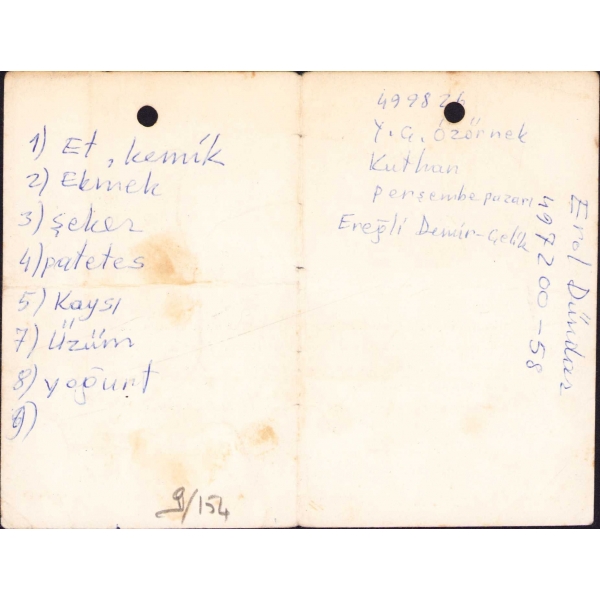 1) Et, kemik
2) Ekmek
3) şeker
4) patetes
5) Kaysı
7) Üzüm
8) yoğurt
9)
9/154
499826
Y. G. özörnek
Kuthan
perşembe pazarı
Ereğli Demir-Çelik
Erol Dündar
497200-58